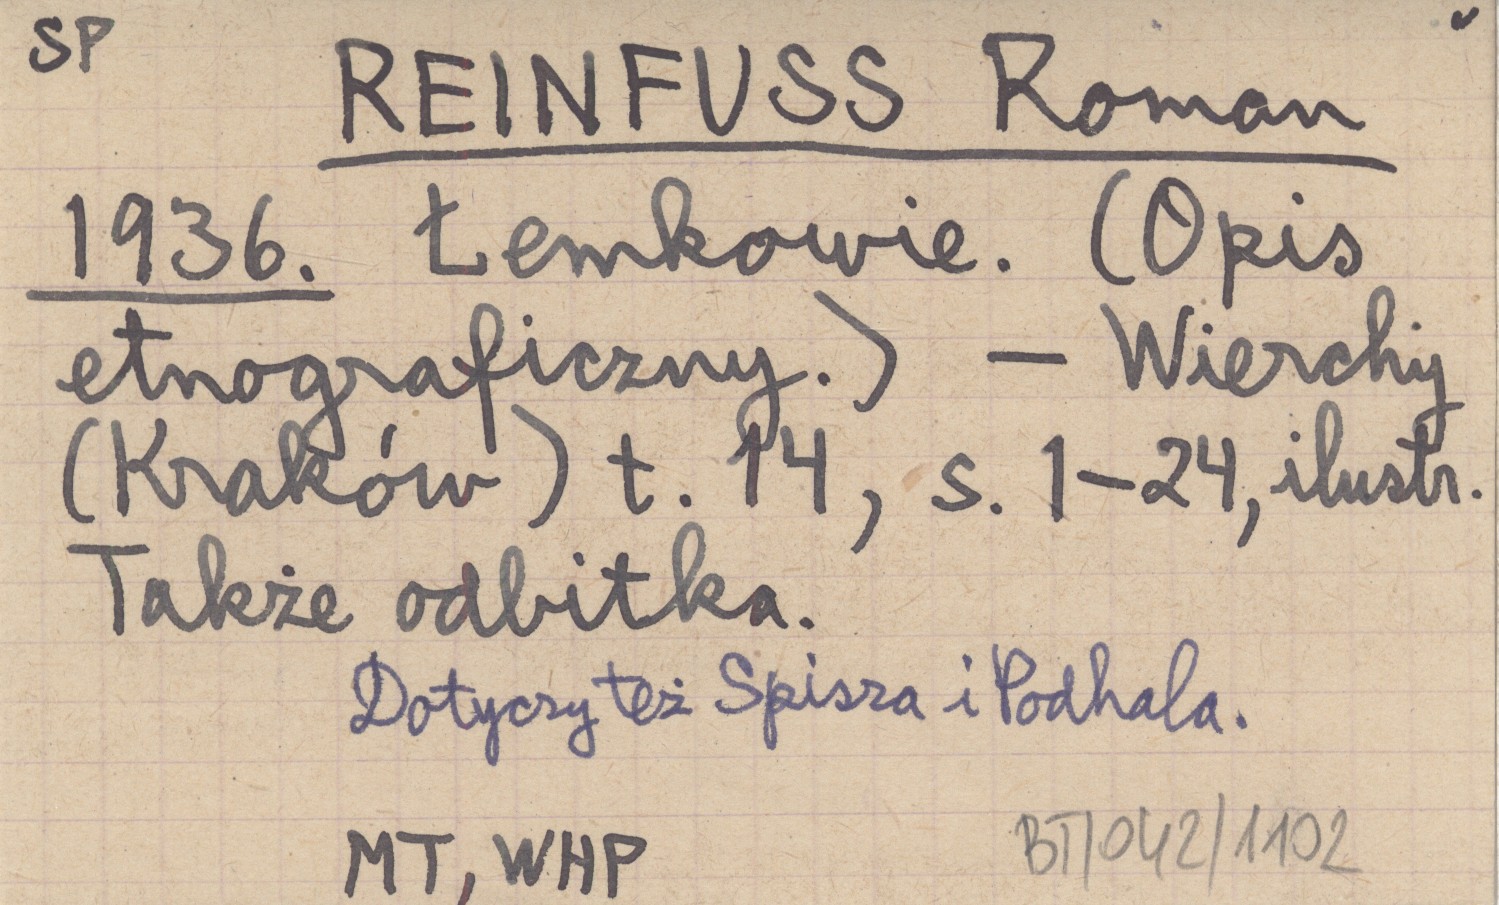 SP
REINFUSS Roman
1936. Łemkowie. (Opis
etnograficzny.) — Wierchy
(Kraków) t. 14, s. 1—24, ilustr.
Także odbitka.
Dotyczy też Spisza i Podhala.
MT, WHP
BT/042/1102